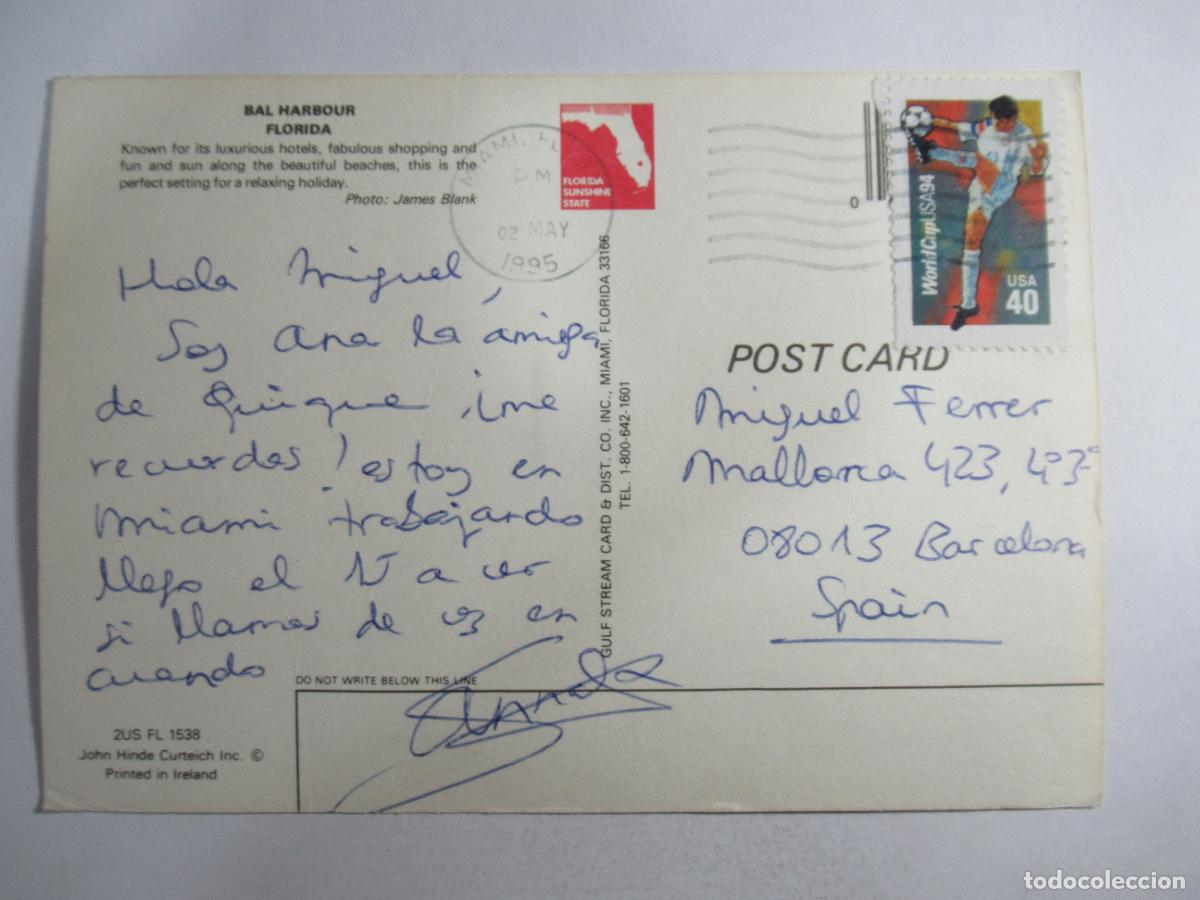 BAL HARBOUR
FLORIDA
Known for its luxurious hotels, fabulous shopping and
fun and sun along the beautiful beaches, this is the
perfect setting for a relaxing holiday.
Photo: James Blank
Hola Miguel,
Soy Ana la amiga
de Quique ¡me
recuerdas! estoy en
Miami trabajando
llego el 15 a ver
si llamas de vez en
cuando
DO NOT WRITE BELOW THIS LINE
2US FL 1538
John Hinde Curteich Inc. ©
Printed in Ireland
MIAMI, FL
PM
02 MAY
1995
FLORIDA
SUNSHINE
STATE
GULF STREAM CARD & DIST. CO. INC., MIAMI, FLORIDA 33166
TEL. 1-800-642-1601
0
WorldCupUSA94
USA
40
POST CARD
Miguel Ferrer
Mallorca 423, 4º3ª
08013 Barcelona
Spain
todocoleccion